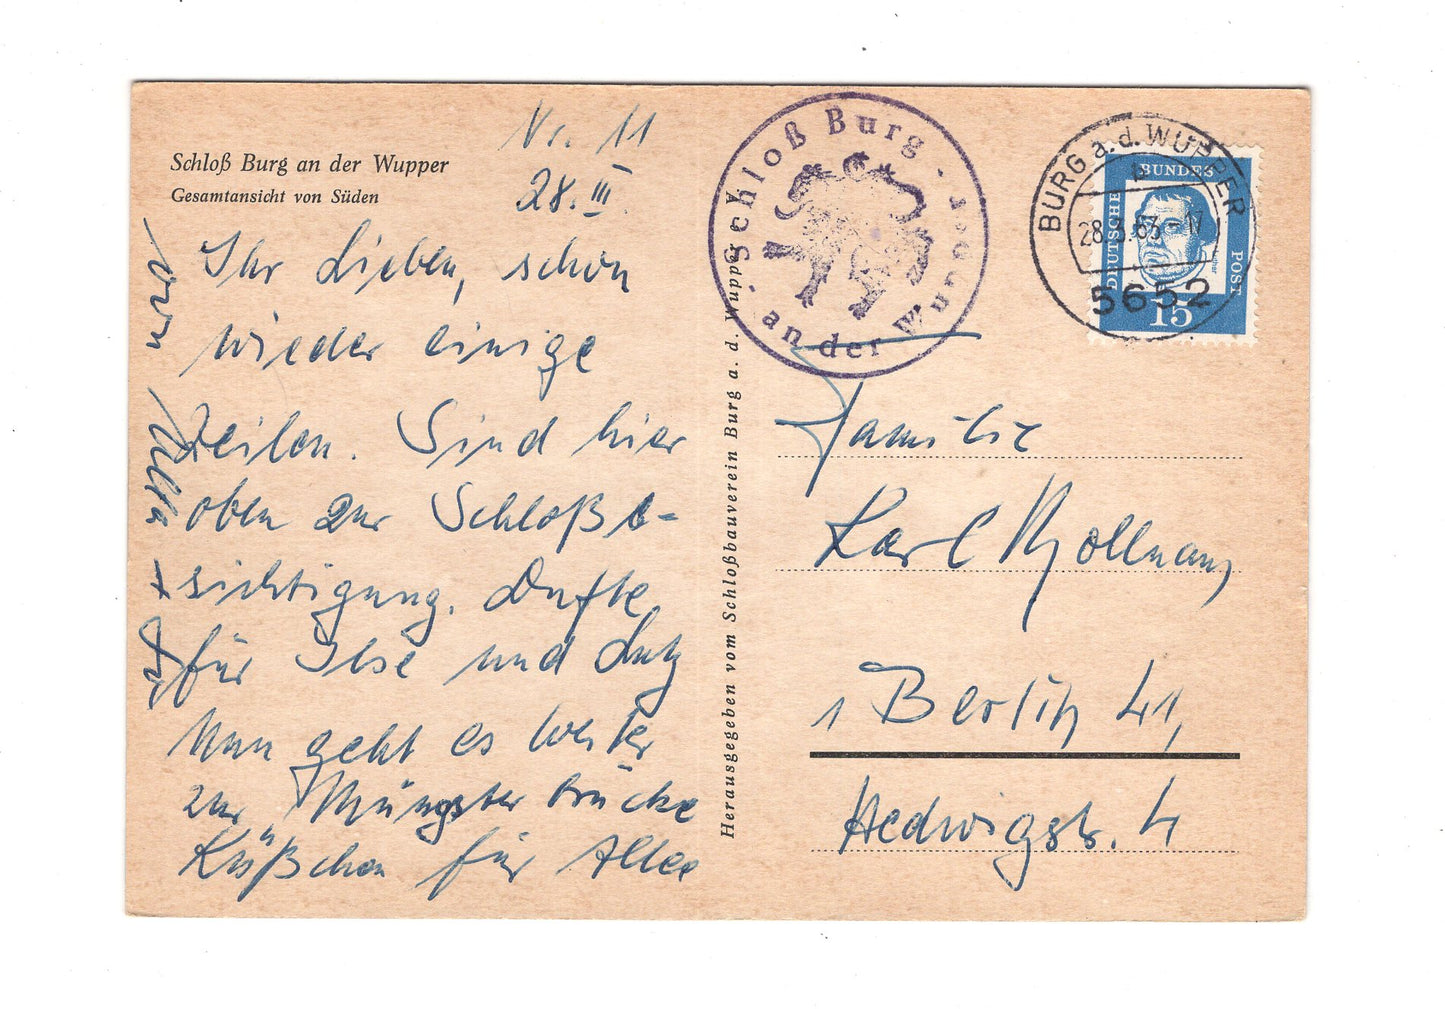 Schloß Burg an der Wupper
Gesamtansicht von Süden
Nr. 11
28. III.
Ihr Lieben, schon
wieder einige
Zeilen. Sind hier
oben zur Schloßbe-
sichtigung. Dufte
für Ilse und Lutz
Nun geht es weiter
zur Müngster Brücke
Küßchen für Alle
von
Herausgegeben vom Schloßbauverein Burg a. d. Wupper
Schloß Burg
an der Wupper
BURG a. d. WUPPER
28.3.63-17
5652
DEUTSCHE
BUNDES
POST
15
Familie
Karl
1 Berlin 41,
Hedwigstr. 4